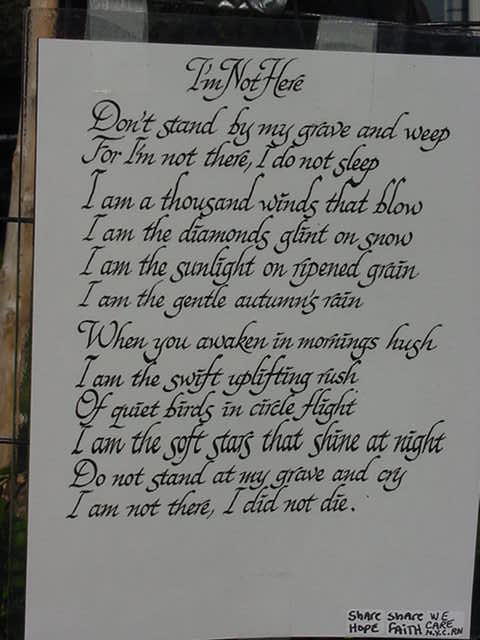 I'm Not Here
Don't stand by my grave and weep
For I'm not there, I do not sleep
I am a thousand winds that blow
I am the diamonds glint on snow
I am the sunlight on ripened grain
I am the gentle autumn's rain
When you awaken in mornings hush
I am the swift uplifting rush
Of quiet birds in circle flight
I am the soft stars that shine at night
Do not stand at my grave and cry
I am not there, I did not die.
SHARE SHARE WE
HOPE FAITH CARE
N.Y.C. RN